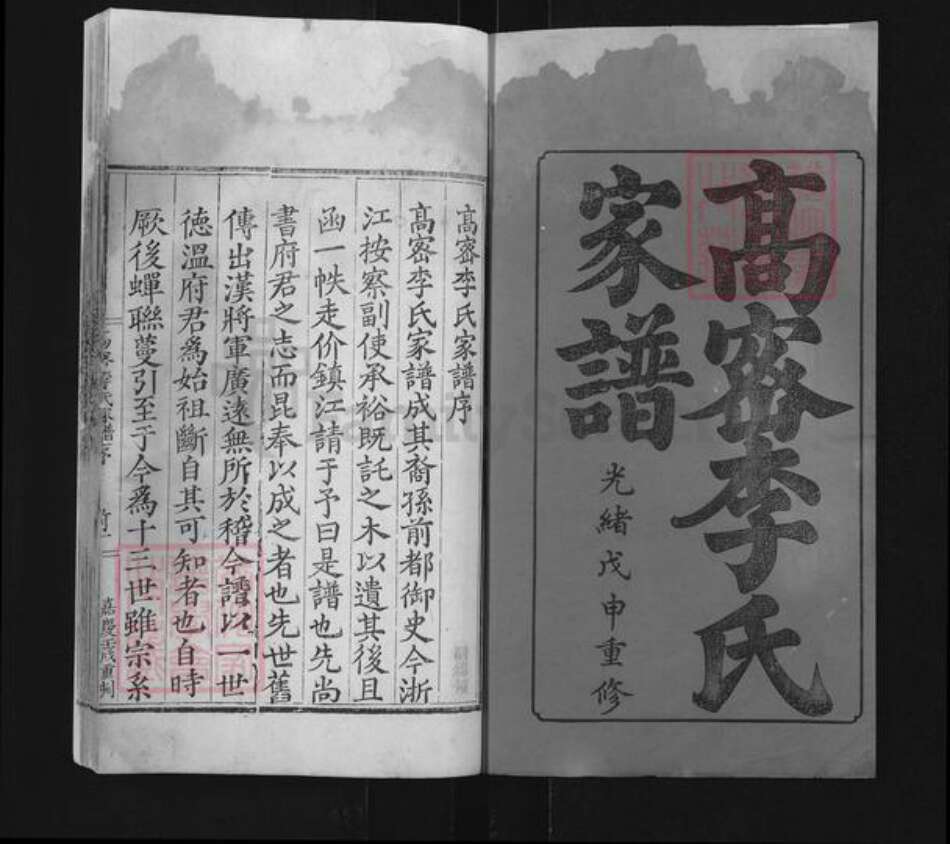 髙密李氏
家譜
光緒戊申重修
髙密李氏家譜序
髙密李氏家譜成其裔孫前都御史今浙
江按察副使承裕既託之木以遺其後且
函一帙走价鎮江請于予曰是譜也先尚
書府君之志而昆奉以成之者也先世舊
傳出漢將軍廣遠無所於稽今譜以一世
徳溫府君爲始祖斷自其可知者也自時
厥後蟬聯蔓引至于今爲十三世雖宗系
嘉慶壬戌重刊